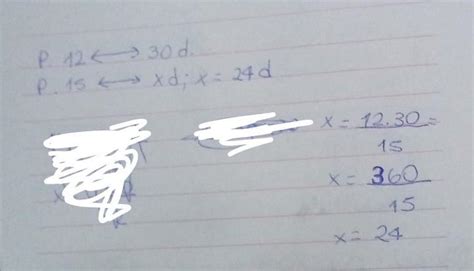 P. 12 ⟷ 30 d.
P. 15 ⟷ x d; x = 24 d
x = 12.30 =
15
x = 360
15
x = 24